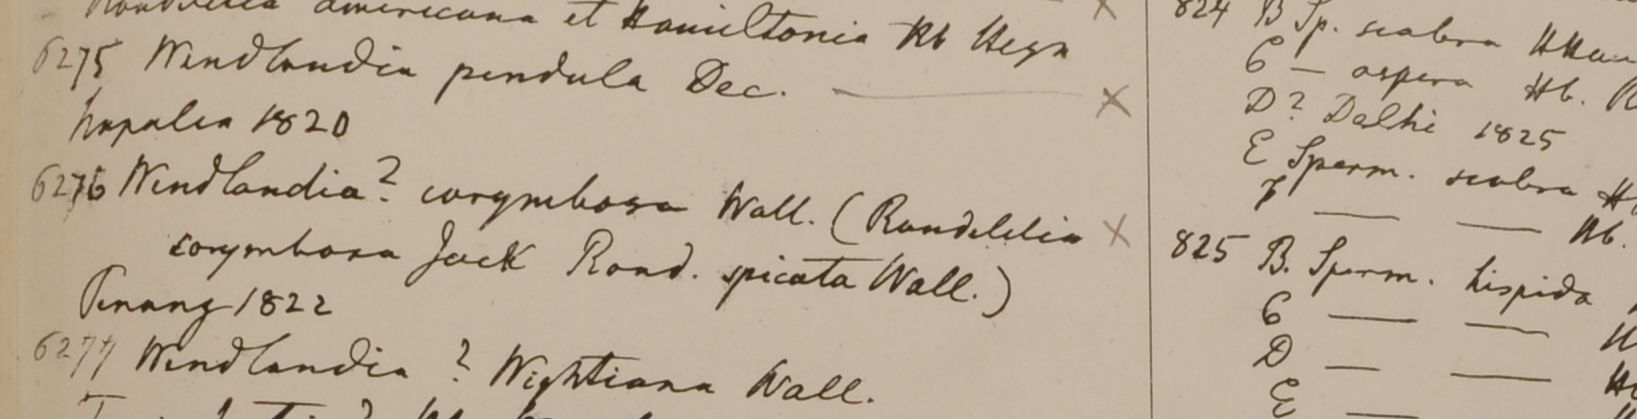 Rondeletia americana et Hamiltonia Hb Heyn
6275 Wendlandia pendula Dec.
Napalia 1820
6276 Wendlandia? corymbosa Wall. (Rondeletia
corymbosa Jack Rond. spicata Wall.)
Penang 1822
6277 Wendlandia ? Wightiana Wall.
824 B Sp. scabra
C — aspera Hb.
D? Dalhi 1825
E Sperm. scabra
F — — Hb.
825 B. Sperm. hispida
C — —
D — —
E —